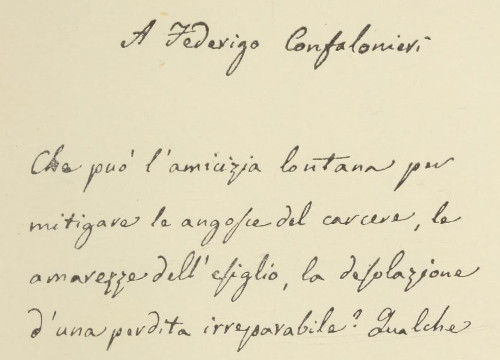 A Federigo Confalonieri
Che può l'amicizia lontana per
mitigare le angosce del carcere, le
amarezze dell'esiglio, la desolazione
d'una perdita irreparabile? Qualche